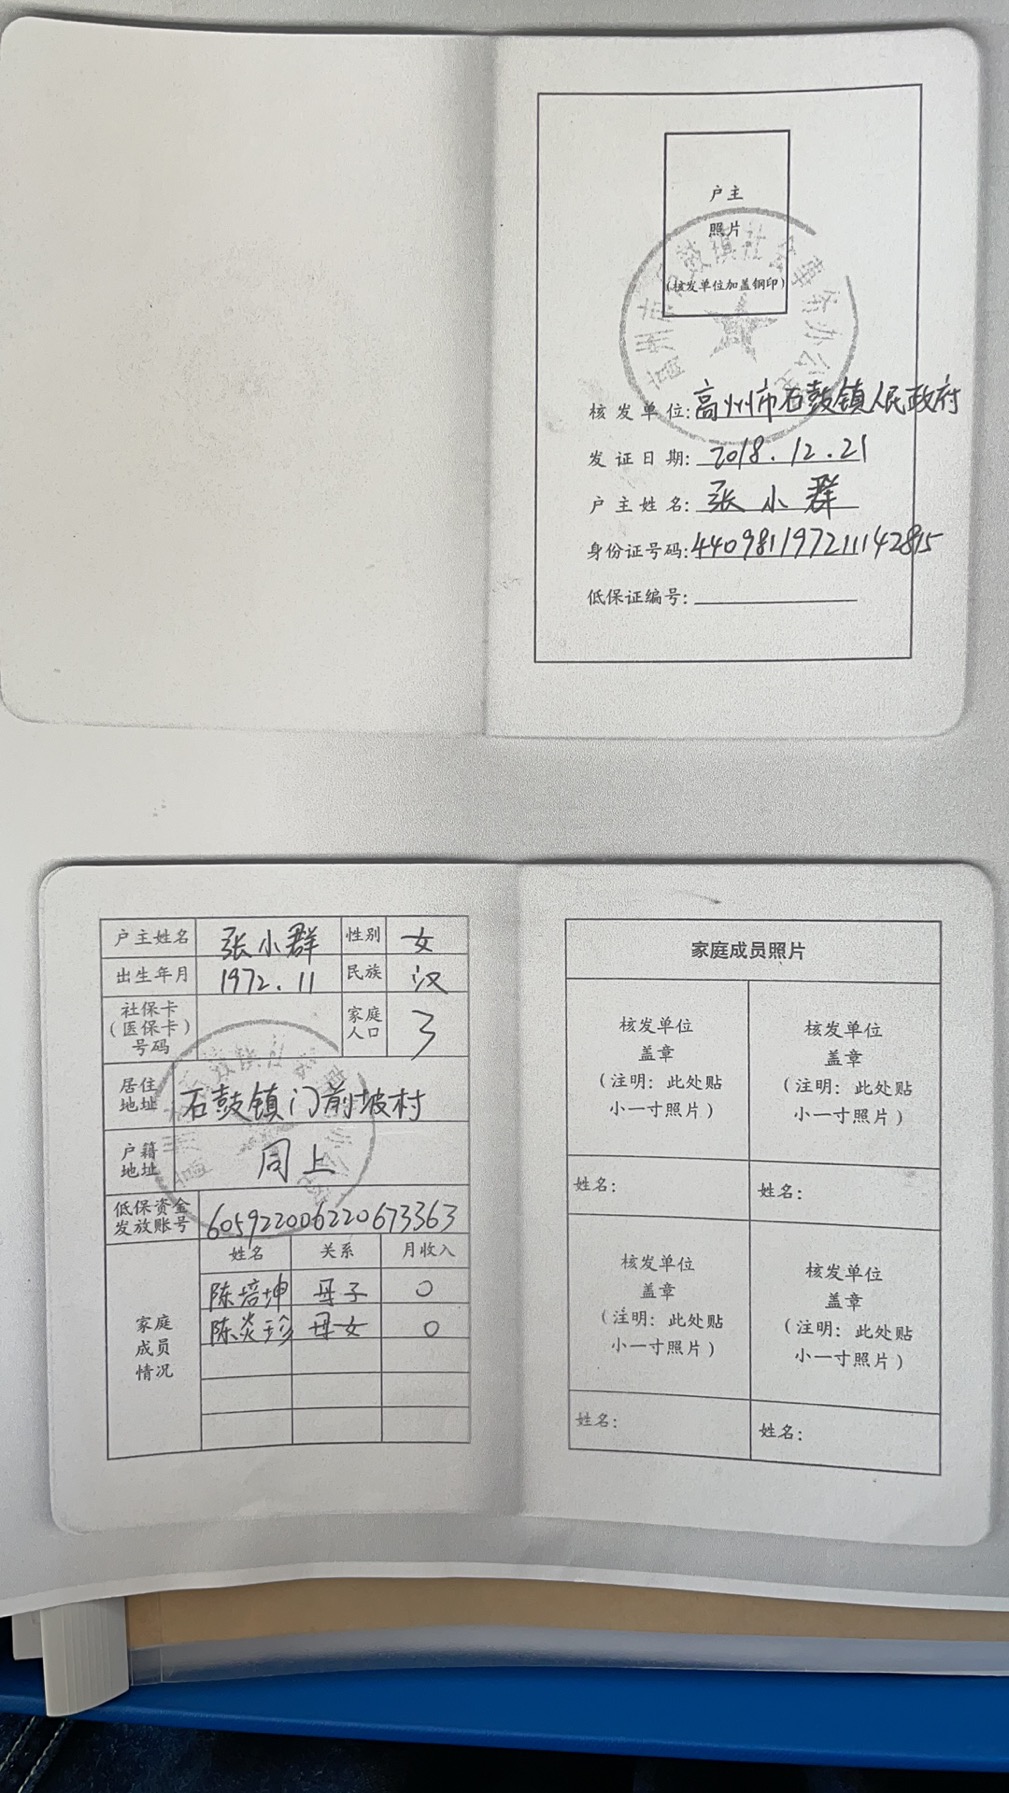 户主
照片
(核发单位加盖钢印)
核发单位:高州市石鼓镇人民政府
发证日期:2018.12.21
户主姓名:张小群
身份证号码:440981197211142815
低保证编号:
户主姓名 张小群 性别 女
出生年月 1972.11 民族 汉
社保卡
(医保卡)
号码
家庭
人口 3
居住
地址 石鼓镇门前坡村
户籍
地址 同上
低保资金
发放账号 605922006220673363
家庭
成员
情况
姓名 关系 月收入
陈培坤 母子 0
陈炎珍 母女 0
家庭成员照片
核发单位
盖章
(注明:此处贴
小一寸照片)
姓名:
核发单位
盖章
(注明:此处贴
小一寸照片)
姓名:
核发单位
盖章
(注明:此处贴
小一寸照片)
姓名:
核发单位
盖章
(注明:此处贴
小一寸照片)
姓名: